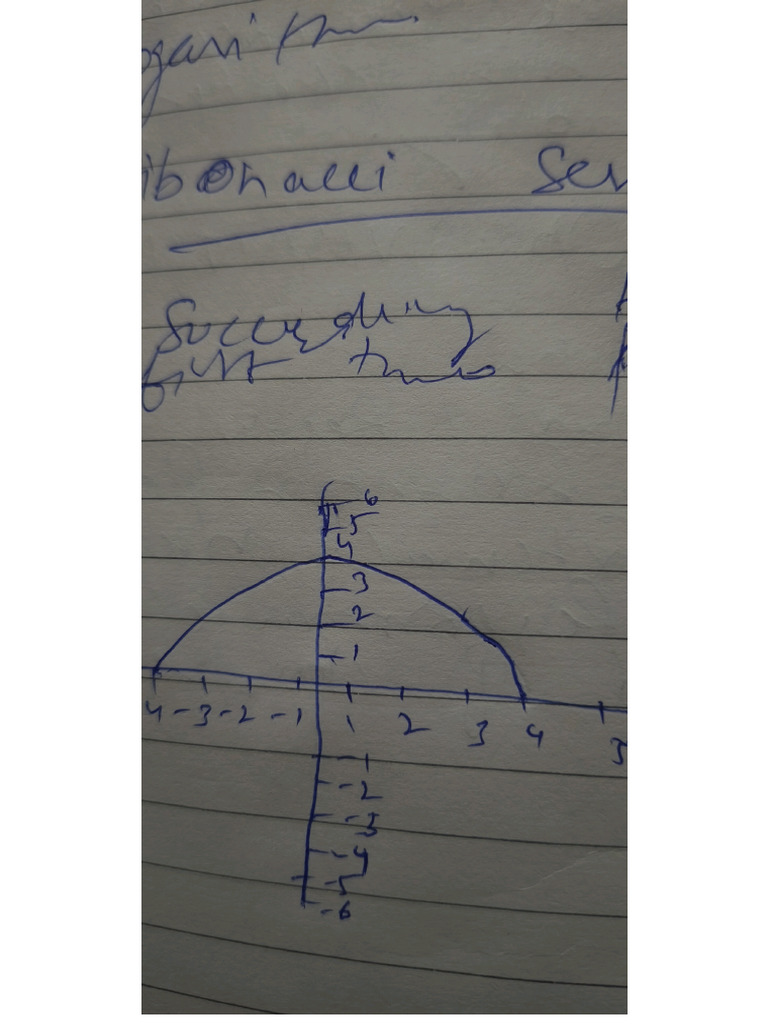 ogarithm
ibonacci Ser
Succeeding
first two
6
5
4
3
2
1
4 -3 -2 -1 1 2 3 4 5
-1
-2
-3
-4
-5
-6